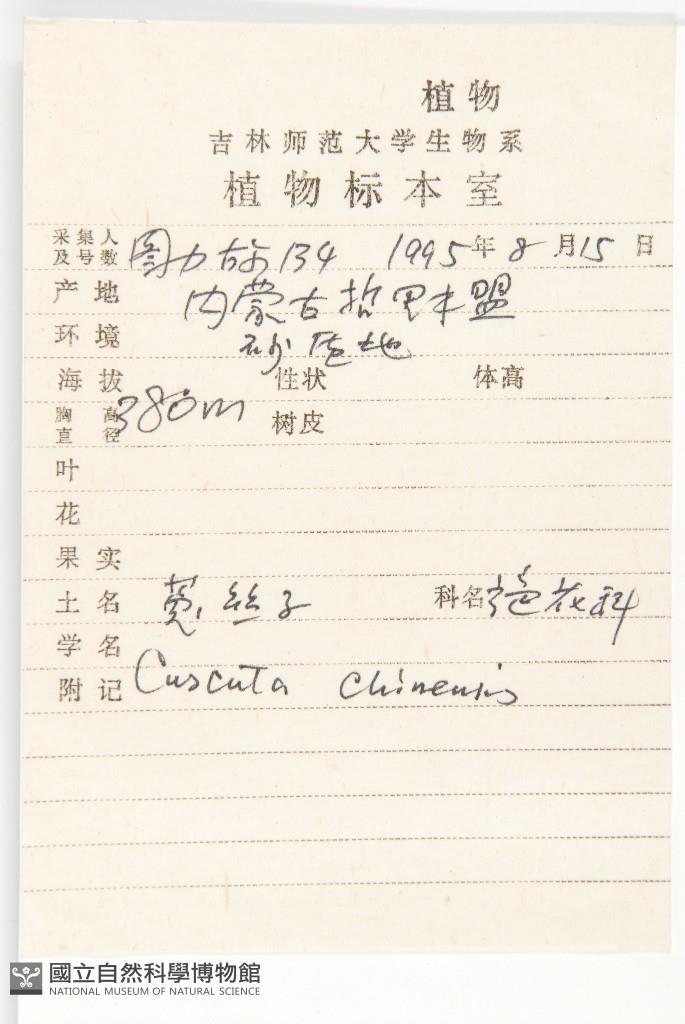 植物
吉林师范大学生物系
植物标本室
采集人及号数 图力古尔 134 1995年8月15日
产地 内蒙古哲里木盟
环境 砂质地
海拔 380m 性状 体高
胸高直径 树皮
叶
花
果实
土名 菟丝子 科名 旋花科
学名 Cuscuta chinensis
附记
國立自然科學博物館
NATIONAL MUSEUM OF NATURAL SCIENCE